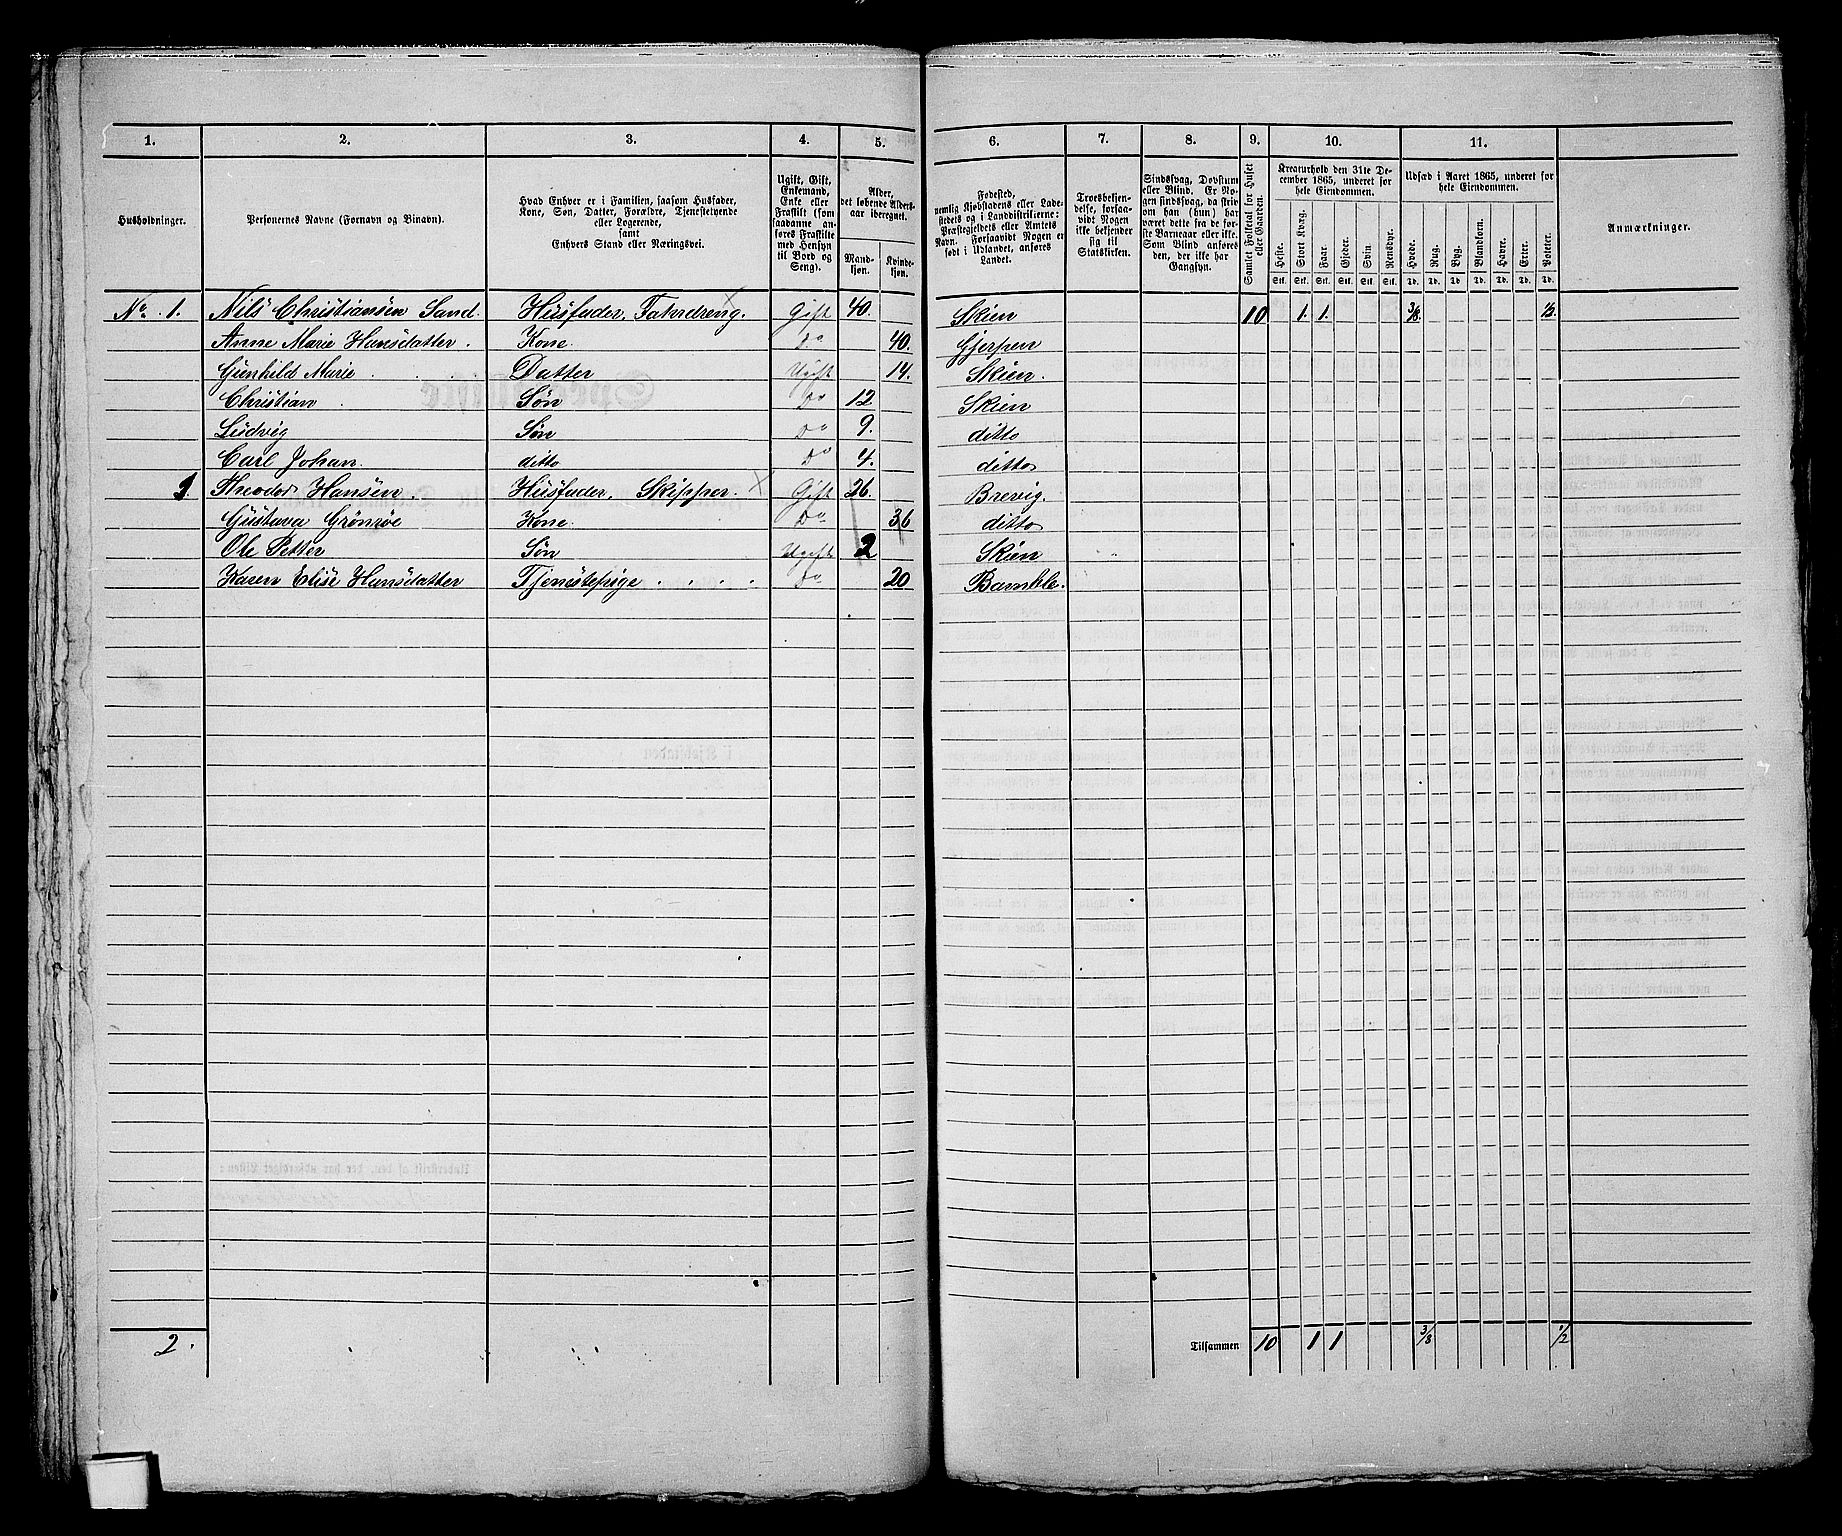 1. 2. 3. 4. 5. 6. 7. 8. 9. 10. 11.
Husholdninger.
Personernes Navne (Fornavn og Binavn).
Hvad Enhver er i Familien, saasom Husfader,
Kone, Søn, Datter, Forældre, Tjenestetyende
eller Logerende,
samt
Enhvers Stand eller Næringsvei.
Ugift, Gift,
Enkemand,
Enke eller
Fraskilt (som
saadanne an-
føres Fraskilte
med Hensyn
til Bord og
Seng).
Alder,
det løbende Alders-
aar iberegnet.
Mand-
kjøn.
Kvinde-
kjøn.
Fødested,
nemlig Kjøbstadens eller Lade-
stedets og i Landdistrikterne:
Præstegjeldets eller Amtets
Navn. Forsaavidt Nogen er
født i Udlandet, anføres
Landet.
Troesbekjen-
delse, forsaa-
vidt Nogen
ikke bekjender
sig til
Statskirken.
Sindssvag, Døvstum
eller Blind. Er No-
gen sindssvag, da skriv
om han (hun) har
været dette fra de før-
ste Barneaar eller ikke.
Som Blind anføres
den, der ikke har
Gangsyn.
Samlet Folketal for Huset
eller Gaarden.
Kreaturhold den 31te De-
cember 1865, underet for
hele Eiendommen.
Heste. Stort Kvæg. Faar. Gjeder. Svin. Rensdyr.
Stk. Stk. Stk. Stk. Stk. Stk.
Udsæd i Aaret 1865, underet for
hele Eiendommen.
Hvede. Rug. Byg. Blandkorn. Havre. Erter. Poteter.
Td. Td. Td. Td. Td. Td. Td.
Anmærkninger.
No. 1. Nils Christiansen Sand. Husfader, Fahrdreng. Gift 40. Skien 10 1. 1. 3/8. 1/2.
Anne Marie Hansdatter. Kone. Do 40. Gjerpen
Gunhild Marie. Datter Ugift 14. Skien.
Christian Søn Do 12 Skien
Ludvig Søn Do 9. ditto
Carl Johan. ditto Do 4. ditto
1. Theodor Hansen. Husfader, Skipper. Gift 26. Brevig.
Gustava Grönröe Kone. Do 36 ditto
Ole Petter Søn Ugift 2 Skien
Karen Elise Hansdatter Tjenestepige Do 20 Bamble.
2. Tilsammen 10 1 1 3/8 1/2